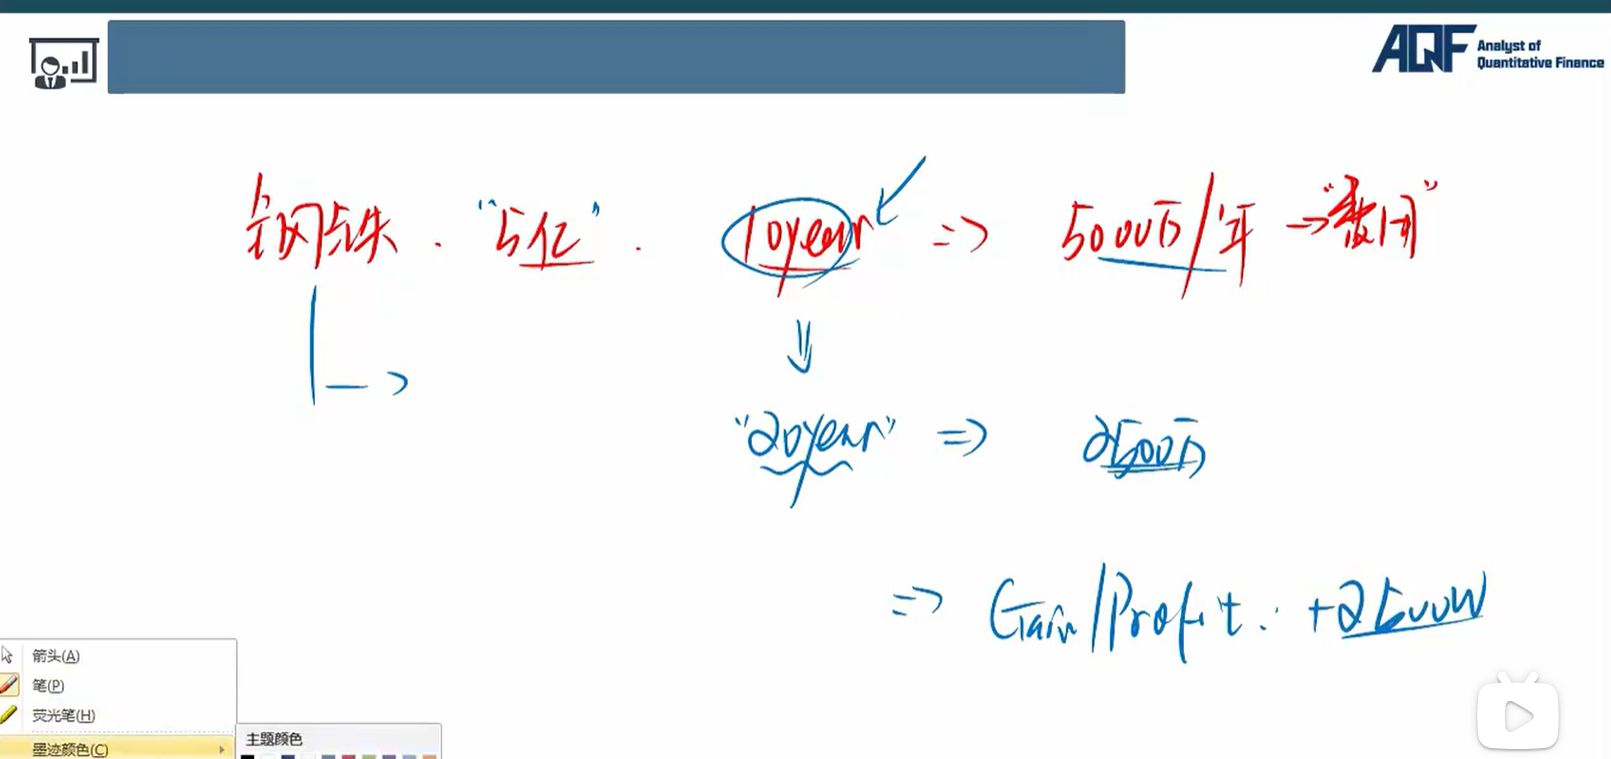 AQF Analyst of
Quantitative Finance
钢铁 . "5亿" . 10year => 5000万/年 → "费用"
"20year" => 2500万
=> Gain/Profit: +2500W
箭头(A)
笔(P)
荧光笔(H)
墨迹颜色(C)
主题颜色